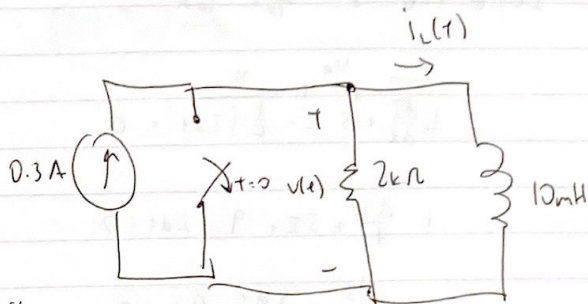 iL(t)
0.3 A
t=0
+
v(t)
-
2kΩ
10mH